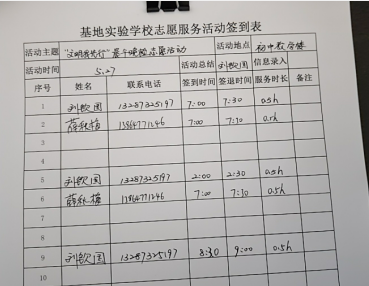 基地实验学校志愿服务活动签到表
活动主题 "文明我先行" 活动 活动地点 初中教学楼
活动时间 5.27 活动总结 刘钦国 信息录入
序号 姓名 联系电话 签到时间 签退时间 服务时长 备注
1 刘钦国 13287325197 7:00 7:30 0.5h
2 薛秋梅 13864771246 7:00 7:30 0.5h
3
4
5 刘钦国 13287325197 2:00 2:30 0.5h
6 薛秋梅 13864771246 7:00 7:30 0.5h
7
8
9 刘钦国 13287325197 8:30 9:00 0.5h
10